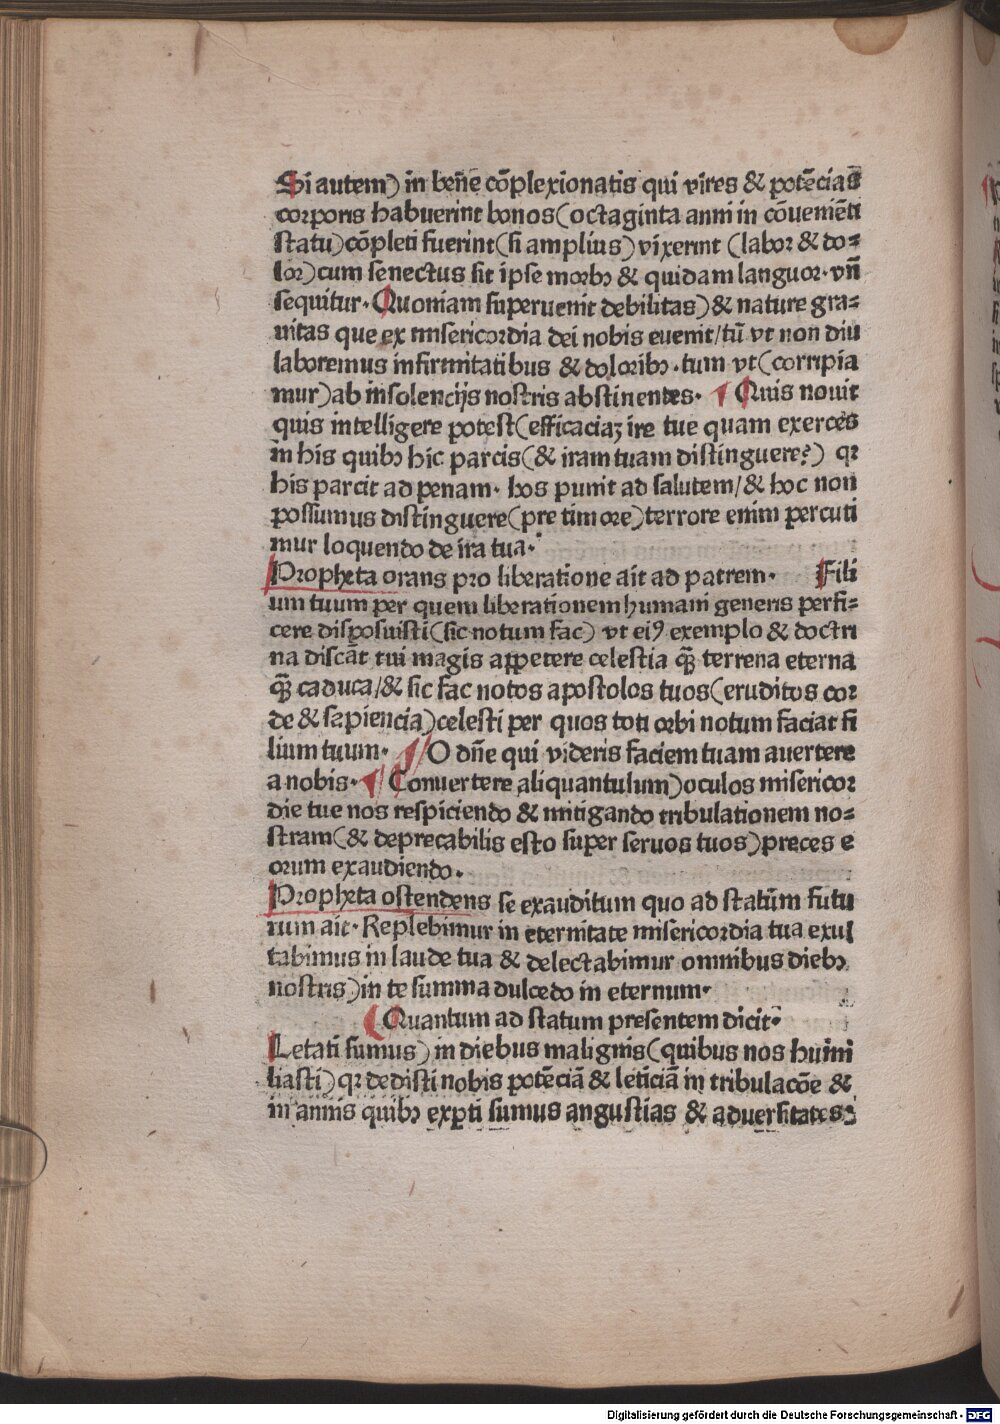 Si autem) in bene cōplexionatis qui vires & potēcias
corporis habuerint bonos (octaginta anni in cōueniēti
statu) cōpleti fuerint (si amplius) vixerint (labor & do=
lor) cum senectus sit ipse morbꝫ & quidam languor· vn̄
sequitur· Quoniam superuenit debilitas) & nature gra=
uitas que ex misericordia dei nobis euenit / tū vt non diu
laboremus infirmitatibus & doloribꝫ · tum vt (corripia
mur) ab insolencijs nostris abstinentes· ¶ Quis nouit
quis intelligere potest (efficaciaꝫ ire tue quam exerces
in his quibꝫ hic parcis (& iram tuam distinguere?) qꝛ
his parcit ad penam· hos punit ad salutem / & hoc non
possumus distinguere (pre timore) terrore enim percuti
mur loquendo de ira tua·
Propheta orans pro liberatione ait ad patrem· Fili
um tuum per quem liberationem humani generis perfi=
cere disposuisti (sic notum fac) vt eiꝰ exemplo & doctri
na discāt tui magis appetere celestia qꝫ̄ terrena eterna
qꝫ̄ caduca / & sic fac notos apostolos tuos (eruditos cor
de & sapiencia) celesti per quos toti orbi notum faciat fi
lium tuum· ¶ O dn̄e qui videris faciem tuam auertere
a nobis· ¶ Conuertere aliquantulum) oculos misericor
die tue nos respiciendo & mitigando tribulationem no=
stram (& deprecabilis esto super seruos tuos) preces e
orum exaudiendo·
Propheta ostendens se exauditum quo ad statum futu
rum ait· Replebimur in eternitate misericordia tua exul
tabimus in laude tua & delectabimur omnibus diebꝫ
nostris) in te summa dulcedo in eternum·
¶ Quantum ad statum presentem dicit·
Letati sumus) in diebus malignis (quibus nos humi
liasti) qꝛ dedisti nobis potēciā & leticiā in tribulacōe &
in annis quibꝫ exꝑti sumus angustias & aduersitates:
Digitalisierung gefördert durch die Deutsche Forschungsgemeinschaft - DFG